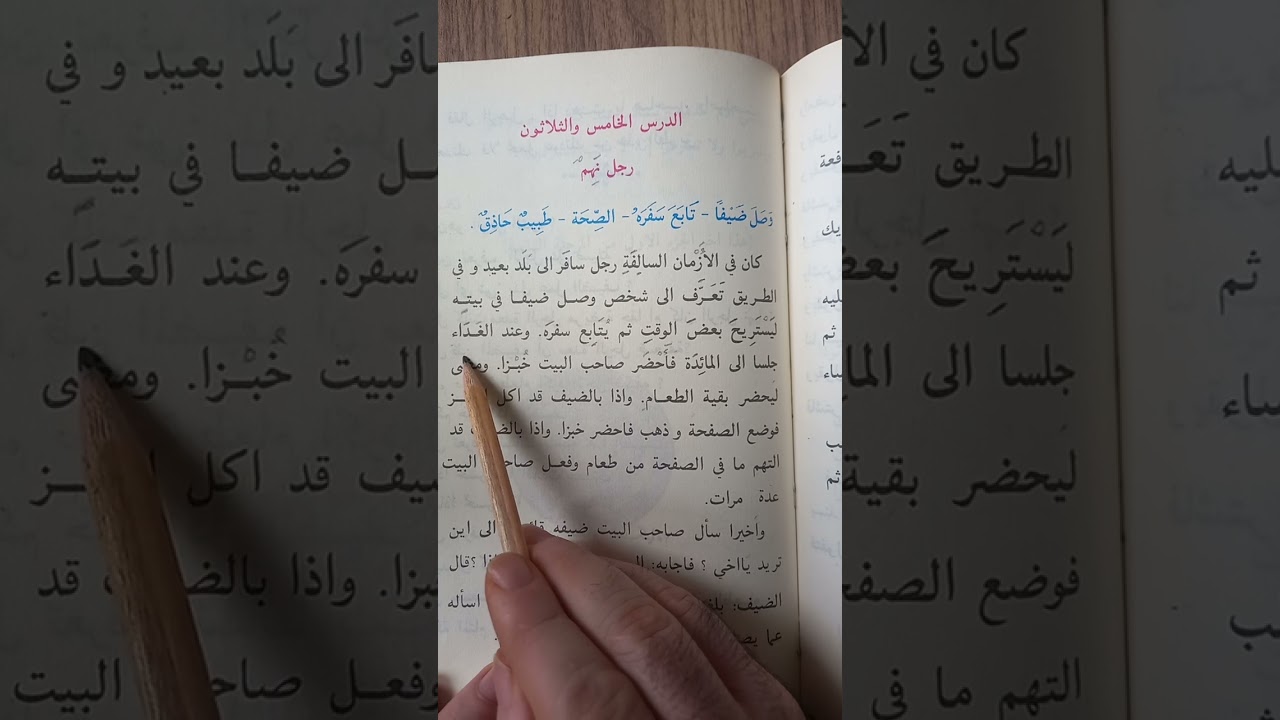 الدرس الخامس والثلاثون
رجل نَهِمٌ
وَصَلَ ضَيْفاً - تَابَعَ سَفَرَهُ - الصِّحَة - طَبِيبٌ حَاذِقٌ .
كان في الأَزْمان السالِفَةِ رجل سافَر الى بَلَد بعيد و في
الطريق تَعَـرَّف الى شخص وصـل ضيفـا في بيتـه
لِيَسْتَرِيحَ بعضَ الوقتِ ثم يُتَابِع سفرَه. وعند الغَـدَاء
جلسا الى المائِدَة فَأَحْضَر صاحب البيت خُبْـزا.
ليحضر بقية الطعـام. واذا بالضيف قد اكل
فوضع الصفحة و ذهب فاحضر خبزا. واذا قد
التهم ما في الصفحة من طعام وفعـل البيت
عدة مرات.
وأخيرا سأل صاحب البيت ضيفه الى اين
تريد يااخي ؟ فاجابه: ؟ قال
الضيف: اسأله
عما